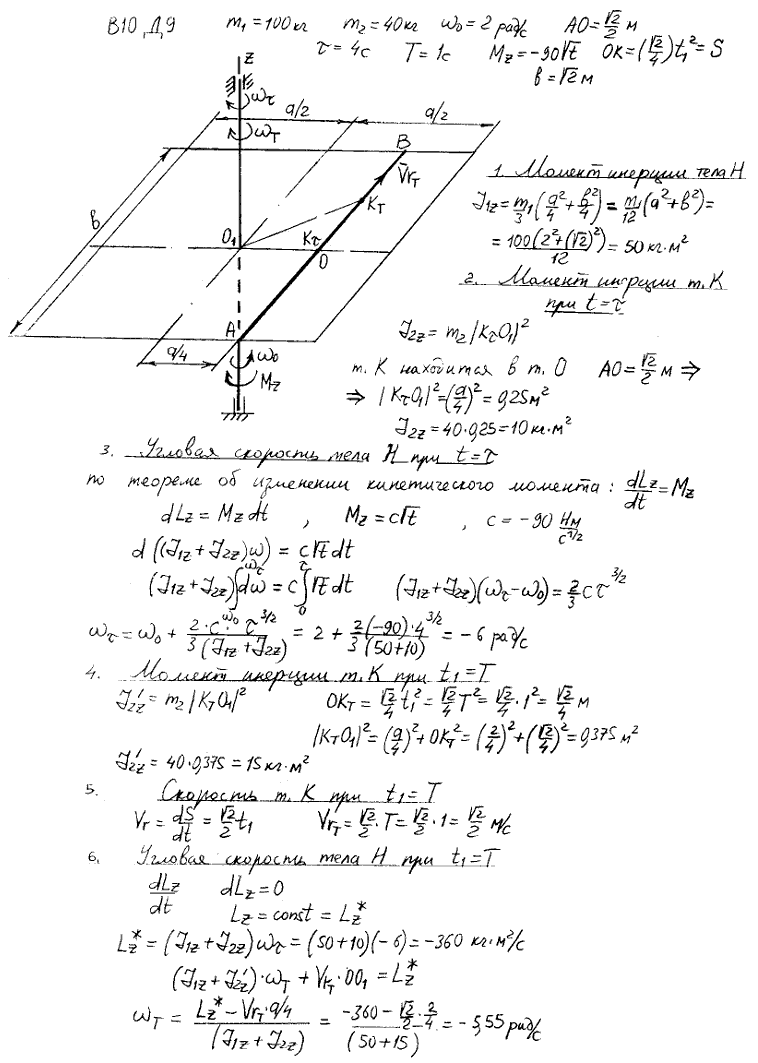 В10 Д9 m₁=100кг m₂=40кг ω₀=2 рад/с AO=√2/2 м
τ=4с T=1с M_z=-90√t OK=(√2/4)t₁²=S
в=√2 м
z
ω_τ
ω_T
a/2 a/2
B
V̄r_T
K_T
в
O₁ K_τ
O
A
a/4
ω₀
M_z
1. Момент инерции тела H
J₁z=m₁/3(a²/4+в²/4)=m₁/12(a²+в²)=
=100(2²+(√2)²)/12=50 кг·м²
2. Момент инерции т.K
при t=τ
J₂z=m₂|K_τO₁|²
т. K находится в т. O AO=√2/2 м ⇒
⇒ |K_τO₁|²=(a/4)²=0,25м²
J₂z=40·0,25=10кг·м²
3. Угловая скорость тела H при t=τ
по теореме об изменении кинетического момента: dLz/dt=Mz
dLz=Mz dt , Mz=c√t , c=-90 Нм/с^1/2
d((J₁z+J₂z)ω)=c√t dt
(J₁z+J₂z)∫_ω₀^ω_τ dω=c∫_0^τ √t dt (J₁z+J₂z)(ω_τ-ω₀)=2/3 cτ^3/2
ω_τ=ω₀+2·c·τ^3/2/3(J₁z+J₂z)=2+2(-90)·4^3/2/3(50+10)=-6 рад/с
4. Момент инерции т.K при t₁=T
J₂z'=m₂|K_TO₁|² OK_T=√2/4 t₁²=√2/4 T²=√2/4·1²=√2/4 м
|K_TO₁|²=(a/4)²+OK_T²=(2/4)²+(√2/4)²=0,375 м²
J₂z'=40·0,375=15кг·м²
5. Скорость т.K при t₁=T
Vr=dS/dt=√2/2 t₁ Vr_T=√2/2·T=√2/2·1=√2/2 м/с
6. Угловая скорость тела H при t₁=T
dLz/dt dLz=0
Lz=const=Lz*
Lz*=(J₁z+J₂z)ω_τ=(50+10)(-6)=-360 кг·м²/с
(J₁z+J₂z')·ω_T+V_K_T·OO₁=Lz*
ω_T=Lz*-Vr_T·a/4/(J₁z+J₂z)=-360-√2/2·2/4/(50+15)=-5,55 рад/с